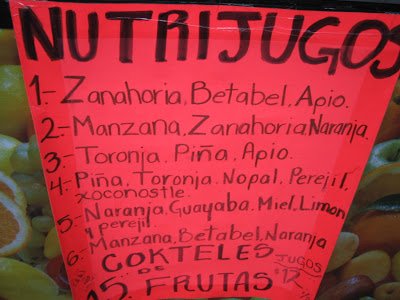 NUTRIJUGOS
1.- Zanahoria, Betabel, Apio.
2.- Manzana, Zanahoria Naranja.
3.- Toronja, Piña, Apio.
4.- Piña, Toronja, Nopal, Perejil,
xoconostle.
5.- Naranja, Guayaba, Miel, Limon
y perejil.
6.- Manzana, Betabel, Naranja
COKTELES JUGOS
DE
FRUTAS